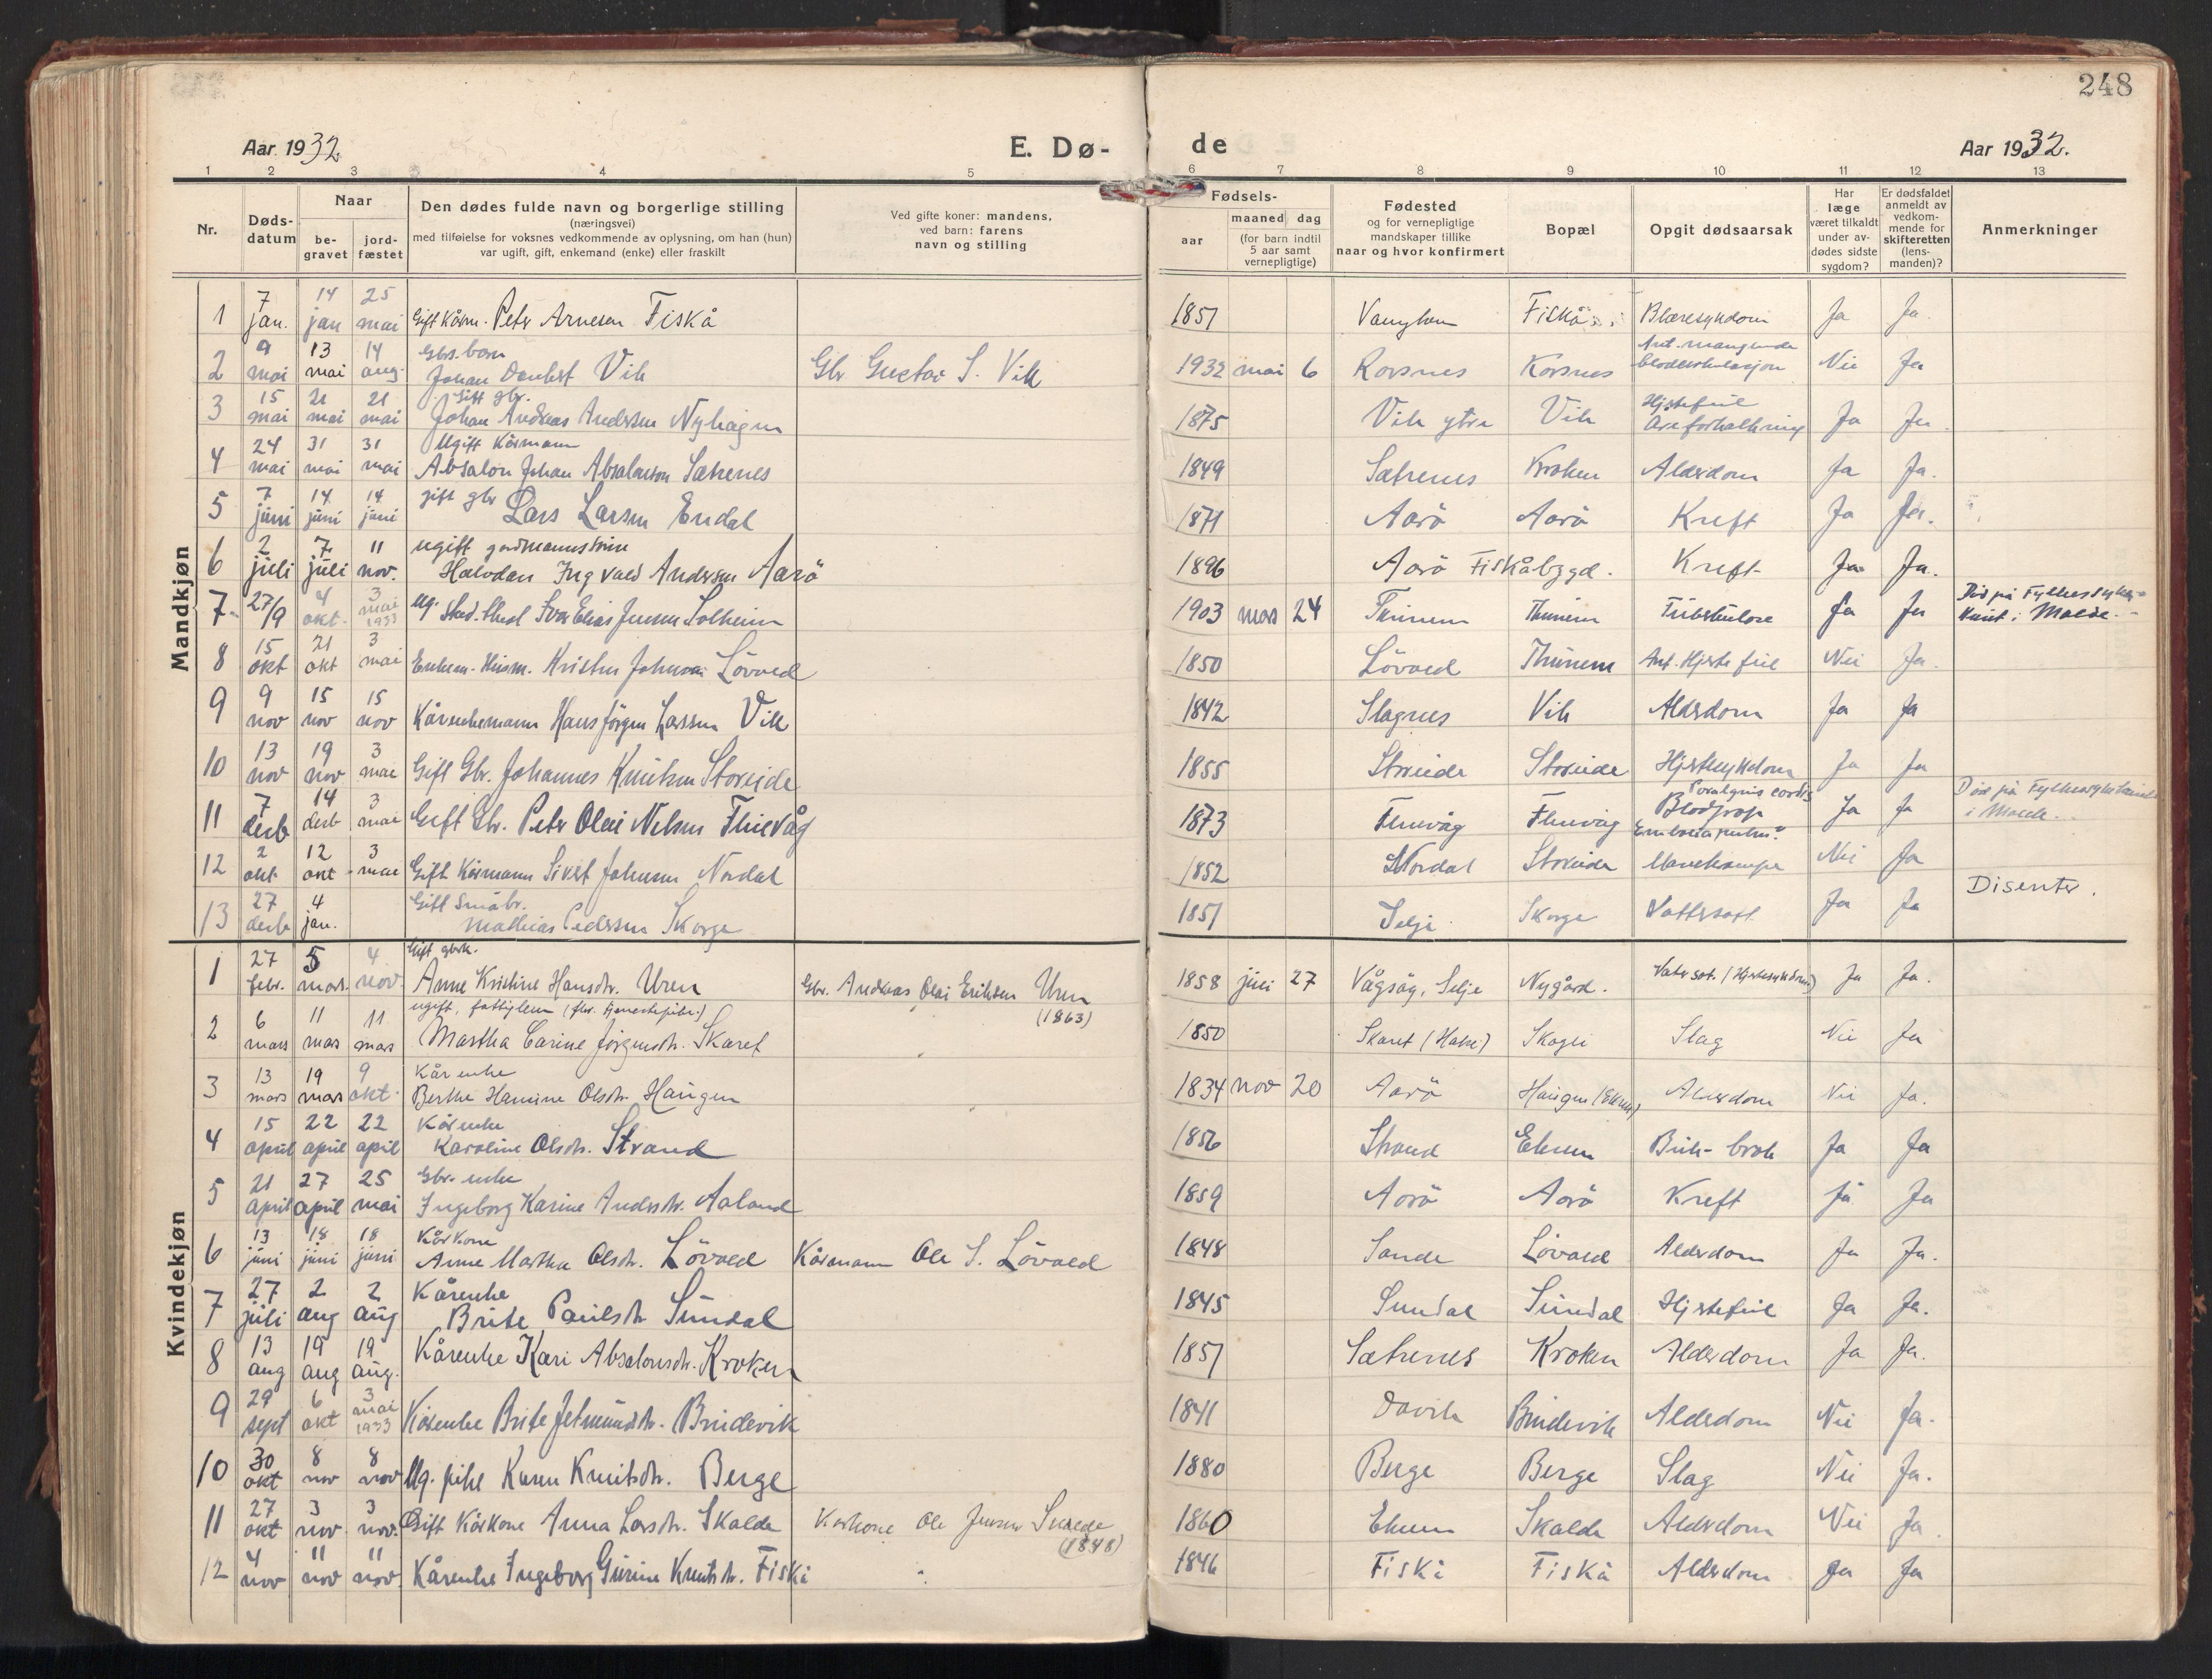 248
Aar 1932
E. Dø-
de
Aar 1932.
1 2 3 4 5 6 7 8 9 10 11 12 13
Nr.
Døds-
datum
Naar
be-
gravet
jord-
fæstet
Den dødes fulde navn og borgerlige stilling
(næringsvei)
med tilføielse for voksnes vedkommende av oplysning, om han (hun)
var ugift, gift, enkemand (enke) eller fraskilt
Ved gifte koner: mandens,
ved barn: farens
navn og stilling
Fødsels-
aar
maaned dag
(for barn indtil
5 aar samt
vernepligtige)
Fødested
og for vernepligtige
mandskaper tillike
naar og hvor konfirmert
Bopæl
Opgit dødsaarsak
Har
læge
været tilkaldt
under av-
dødes sidste
sygdom?
Er dødsfaldet
anmeldt av
vedkom-
mende for
skifteretten
(lens-
manden)?
Anmerkninger
Mandkjøn
1 7 jan. 14 jan 25 mai Gift Kårm. Peter Arnesen Fiskå 1851 Fiskå Blæresykdom Ja Ja.
2 9 mai 13 mai 14 aug. Gbrs. barn Johan Vik Gbr Gustav S. Vik 1932 mai 6 Korsnes Korsnes Ant. manglende blodsirkulasjon Nei Ja
3 15 mai 21 mai 21 mai Gift gbr. Johan Andreas Andersen Nyhagen 1875 Vik ytre Vik Hjertefeil Areforkalkning Ja Ja.
4 24 mai 31 mai 31 mai Ugift Kårmann Absalon Johan Absalonson Sætrenes 1849 Sætrenes Kroken Alderdom Ja Ja.
5 7 juni 14 juni 14 juni gift gbr Lars Larsen Endal 1871 Aarö Aarö Kreft Ja Ja.
6 2 juli 7 juli 11 nov. ugift gardmannssønn Halvdan Ingvald Andersen Aarö 1896 Aarö Fiskåbygd. Kreft Ja Ja.
7 27/9 4 okt. 3 mai 1933 Ug. Stud. Ivar Elias Jensen Solheim 1903 mars 24 Thunem Thunem Tuberkulose Ja Ja Död på Fylkessyke- huset i Molde.
8 15 okt 21 okt 3 mai Enkem. Husm. Kristen Johnsen Lövoed 1850 Lövoed Thunem Ant. Hjertefeil Nei Ja.
9 9 nov 15 nov 15 nov Kårenkemann Hans Jörgen Larsen Vik 1842 Slagnes Vik Alderdom Ja Ja
10 13 nov 19 nov 3 mai Gift Gbr. Johannes Knutsen Storeide 1855 Storeide Storeide Hjertesykdom Ja Ja
11 7 desb 14 desb 3 mai Gift Gbr. Peter Olai Nilsen Fluevåg 1873 Fluevåg Fluevåg cordis Blodprop Ja Ja Död på Fylkessykehuset i Molde.
12 2 okt 12 okt 3 mai Gift Kårmann Sivert Johnsen Nordal 1852 Nordal Storeide Nei Ja
13 27 desb 4 jan. Gift småbr. Mathias Pedersen Skorge 1851 Selje Skorge Vattersott Ja Ja Disenter.
Kvindekjøn
1 27 febr. 5 mars. 4 nov. Gift gbrk. Anne Kristine Hansdtr. Uren Gbr. Andreas Olai Eriksen Uren (1863) 1858 juni 27 Vågsøy, Selje Nygård. Vatersot. (Hjertesykdom) Ja Ja.
2 6 mars 11 mars 11 mars ugift, fattiglem (før. tjenestepike.) Martha Carine Jörgensdtr. Skaret 1850 Skaret Skogli Slag Nei Ja
3 13 mars 19 mars 9 okt. Kårenke Berthe Hansine Olsdtr. Haugen 1834 nov 20 Aarö Haugen (Eknes) Alderdom Nei Ja.
4 15 april 22 april 22 april Kårenke Karoline Olsdtr. Strand 1856 Strand Eknes Buk-brok Ja Ja
5 21 april 27 april 25 mai Gbr. enke Ingeborg Karine Andrsdtr. Aaland 1859 Aarö Aarö Kreft Ja Ja
6 13 juni 18 juni 18 juni Kårkone Anne Martha Olsdtr. Lövoed Kårmann Ole S. Lövoed 1848 Sande Lövoed Alderdom Ja Ja.
7 27 juli 2 aug 2 aug Kårenke Brite Paulsdtr Sundal 1845 Sundal Sundal Hjertefeil Ja Ja.
8 13 aug 19 aug 19 aug. Kårenke Kari Absalonsdtr. Kroken 1851 Sætrenes Kroken Alderdom Ja Ja.
9 29 sept 6 okt 3 mai 1933 Kårenke Brite Jetmundsdtr. Brudevik 1841 Davik Brudevik Alderdom Nei Ja.
10 30 okt 8 nov 8 nov Ug. pike Karen Knutsdtr. Berge 1880 Berge Berge Slag Nei Ja.
11 27 okt 3 nov. 3 nov. Gift Kårkone Anna Larsdtr. Skalde Kårkone Ole Jensen (1848) 1860 Eknes Skalde Alderdom Nei Ja.
12 4 nov 11 nov 11 nov. Kårenke Ingeborg Gurine Knutsdtr. Fiskå 1846 Fiskå Fiskå Alderdom Ja Ja